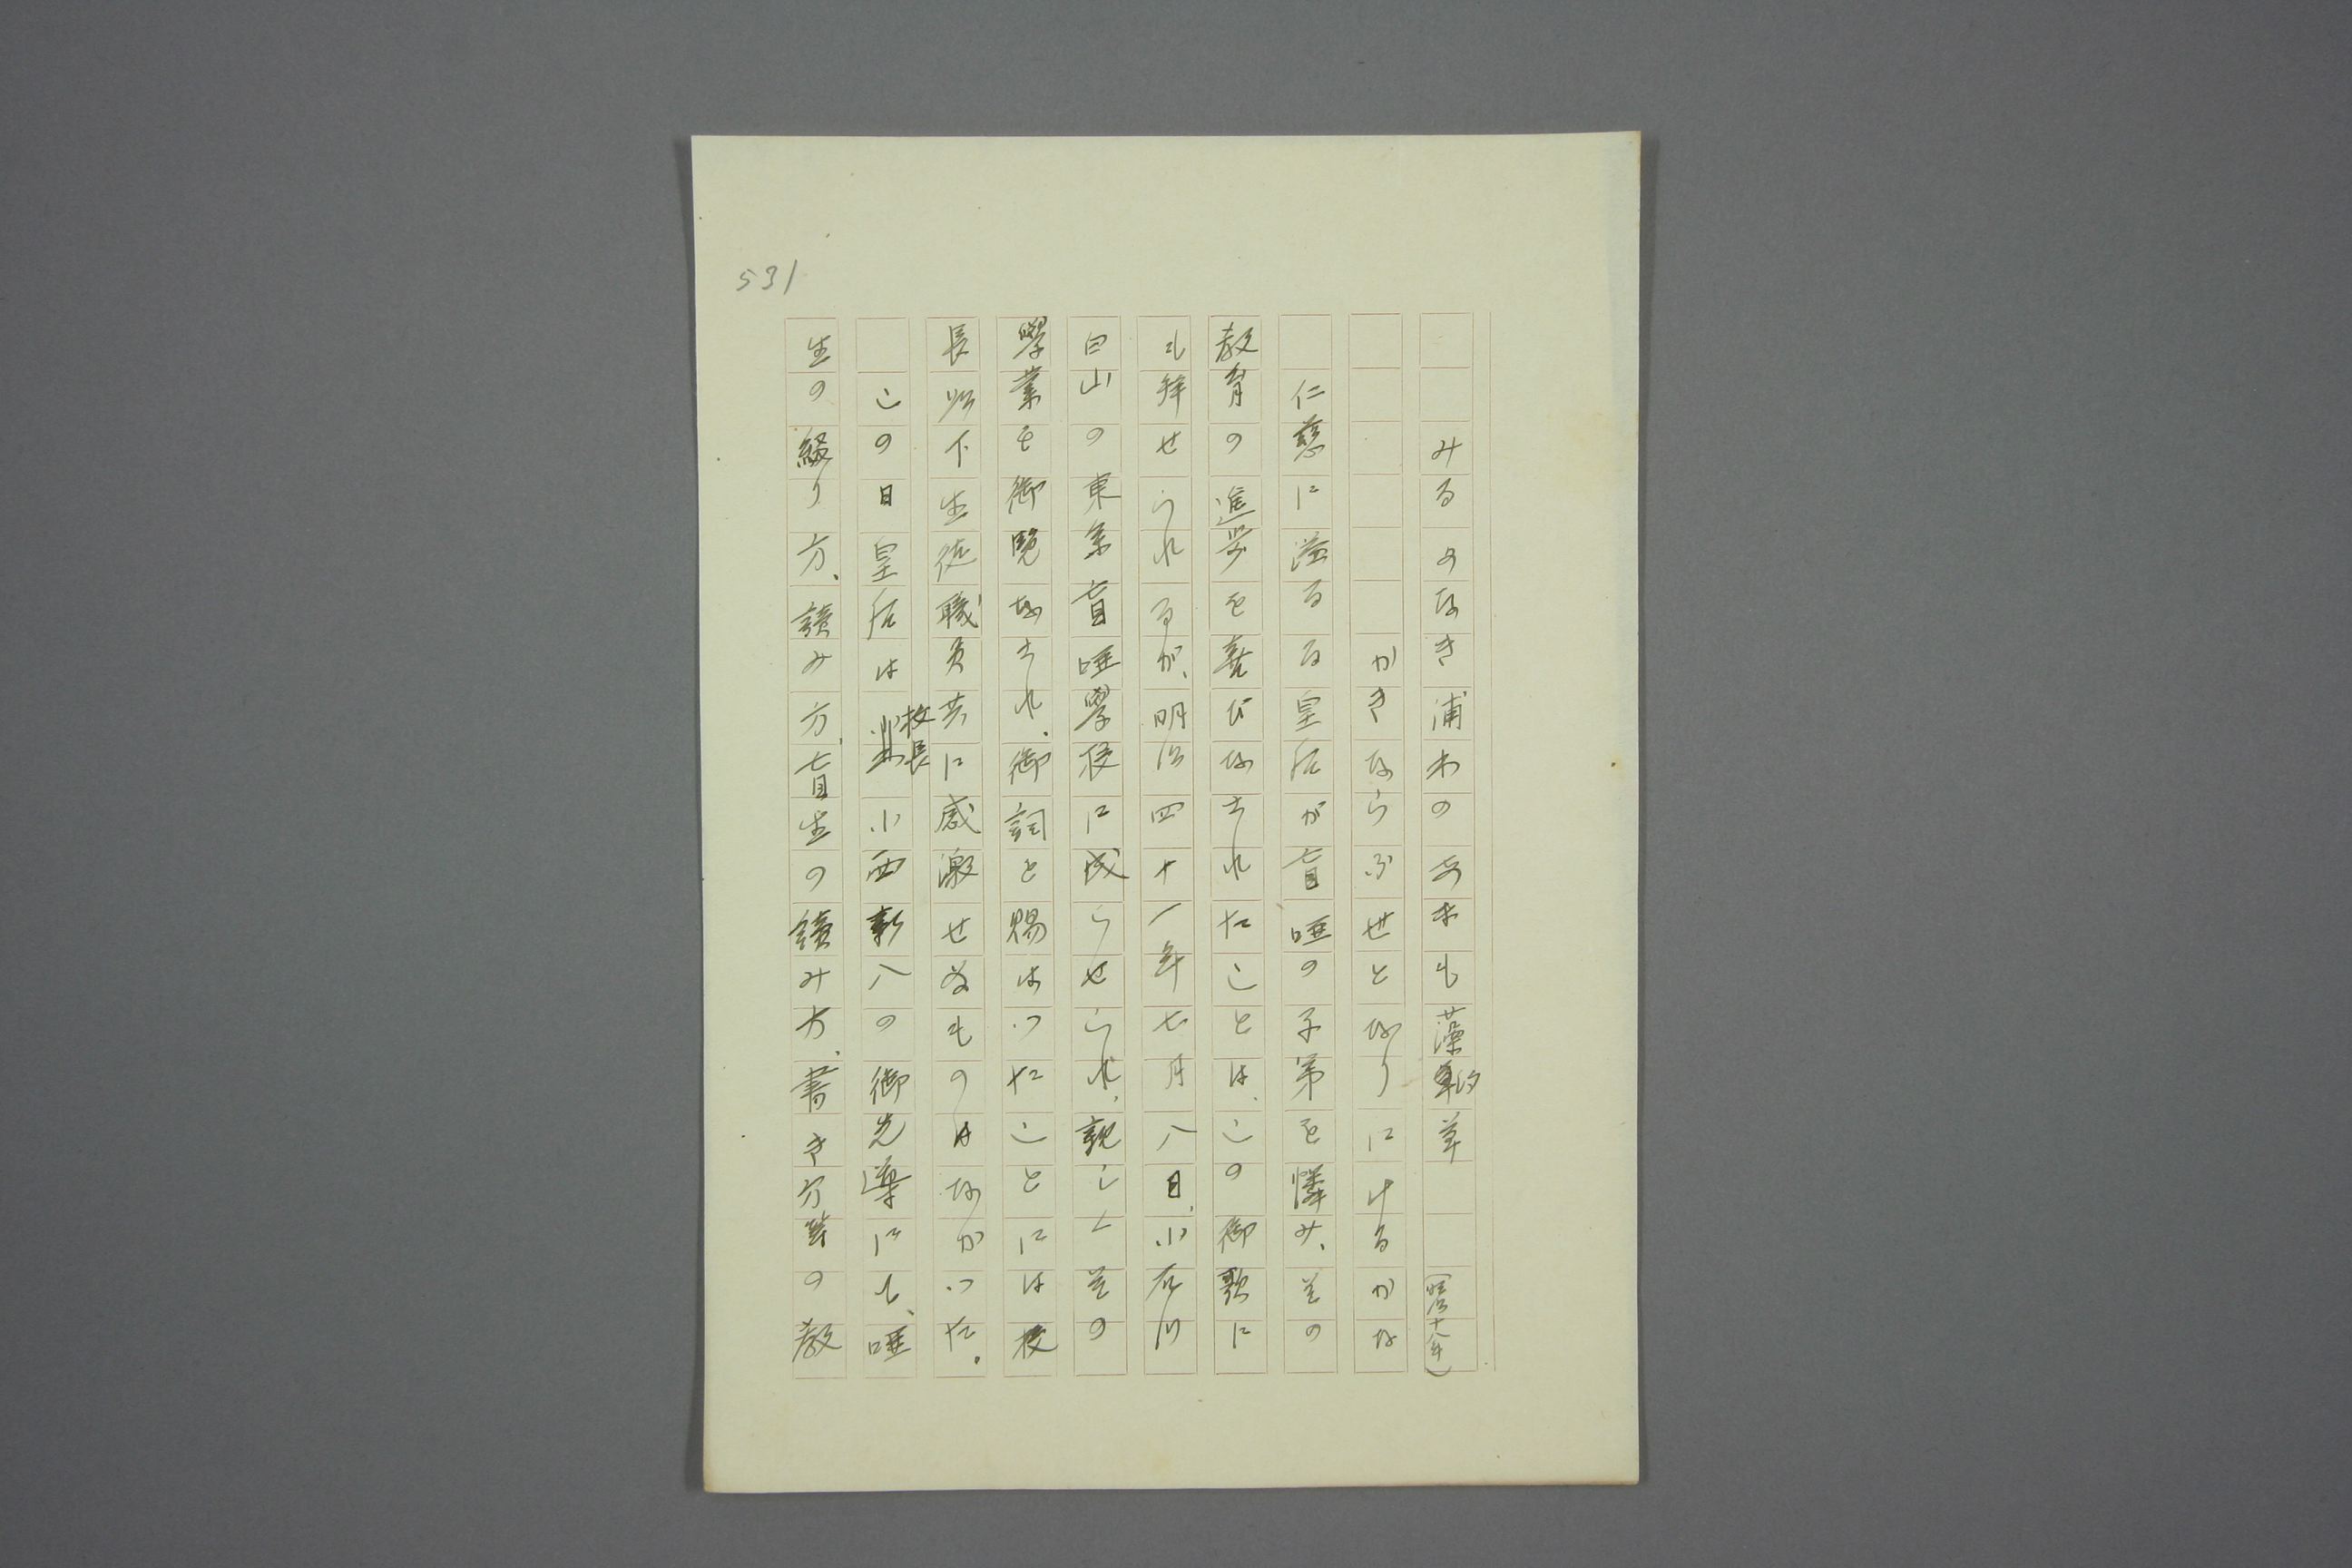 531
みるめなき浦わのあまも藻汐草 (明治十八年)
かきならふ世となりにけるかな
仁慈に溢るる皇后が盲唖の子弟を憐み、その
教育の進歩を喜びなされたことは、この御歌に
も拝せられるが、明治四十一年七月八日、小石川
白山の東京盲唖學校に成らせられ、親しくその
學業を御覽なされ、御詞を賜はつたことには校
長以下生徒職員共に感激せぬものはなかつた。
この日皇后は校長小西新八の御先導にて、唖
生の綴り方、讀み方、盲生の讀み方、書き方等の教